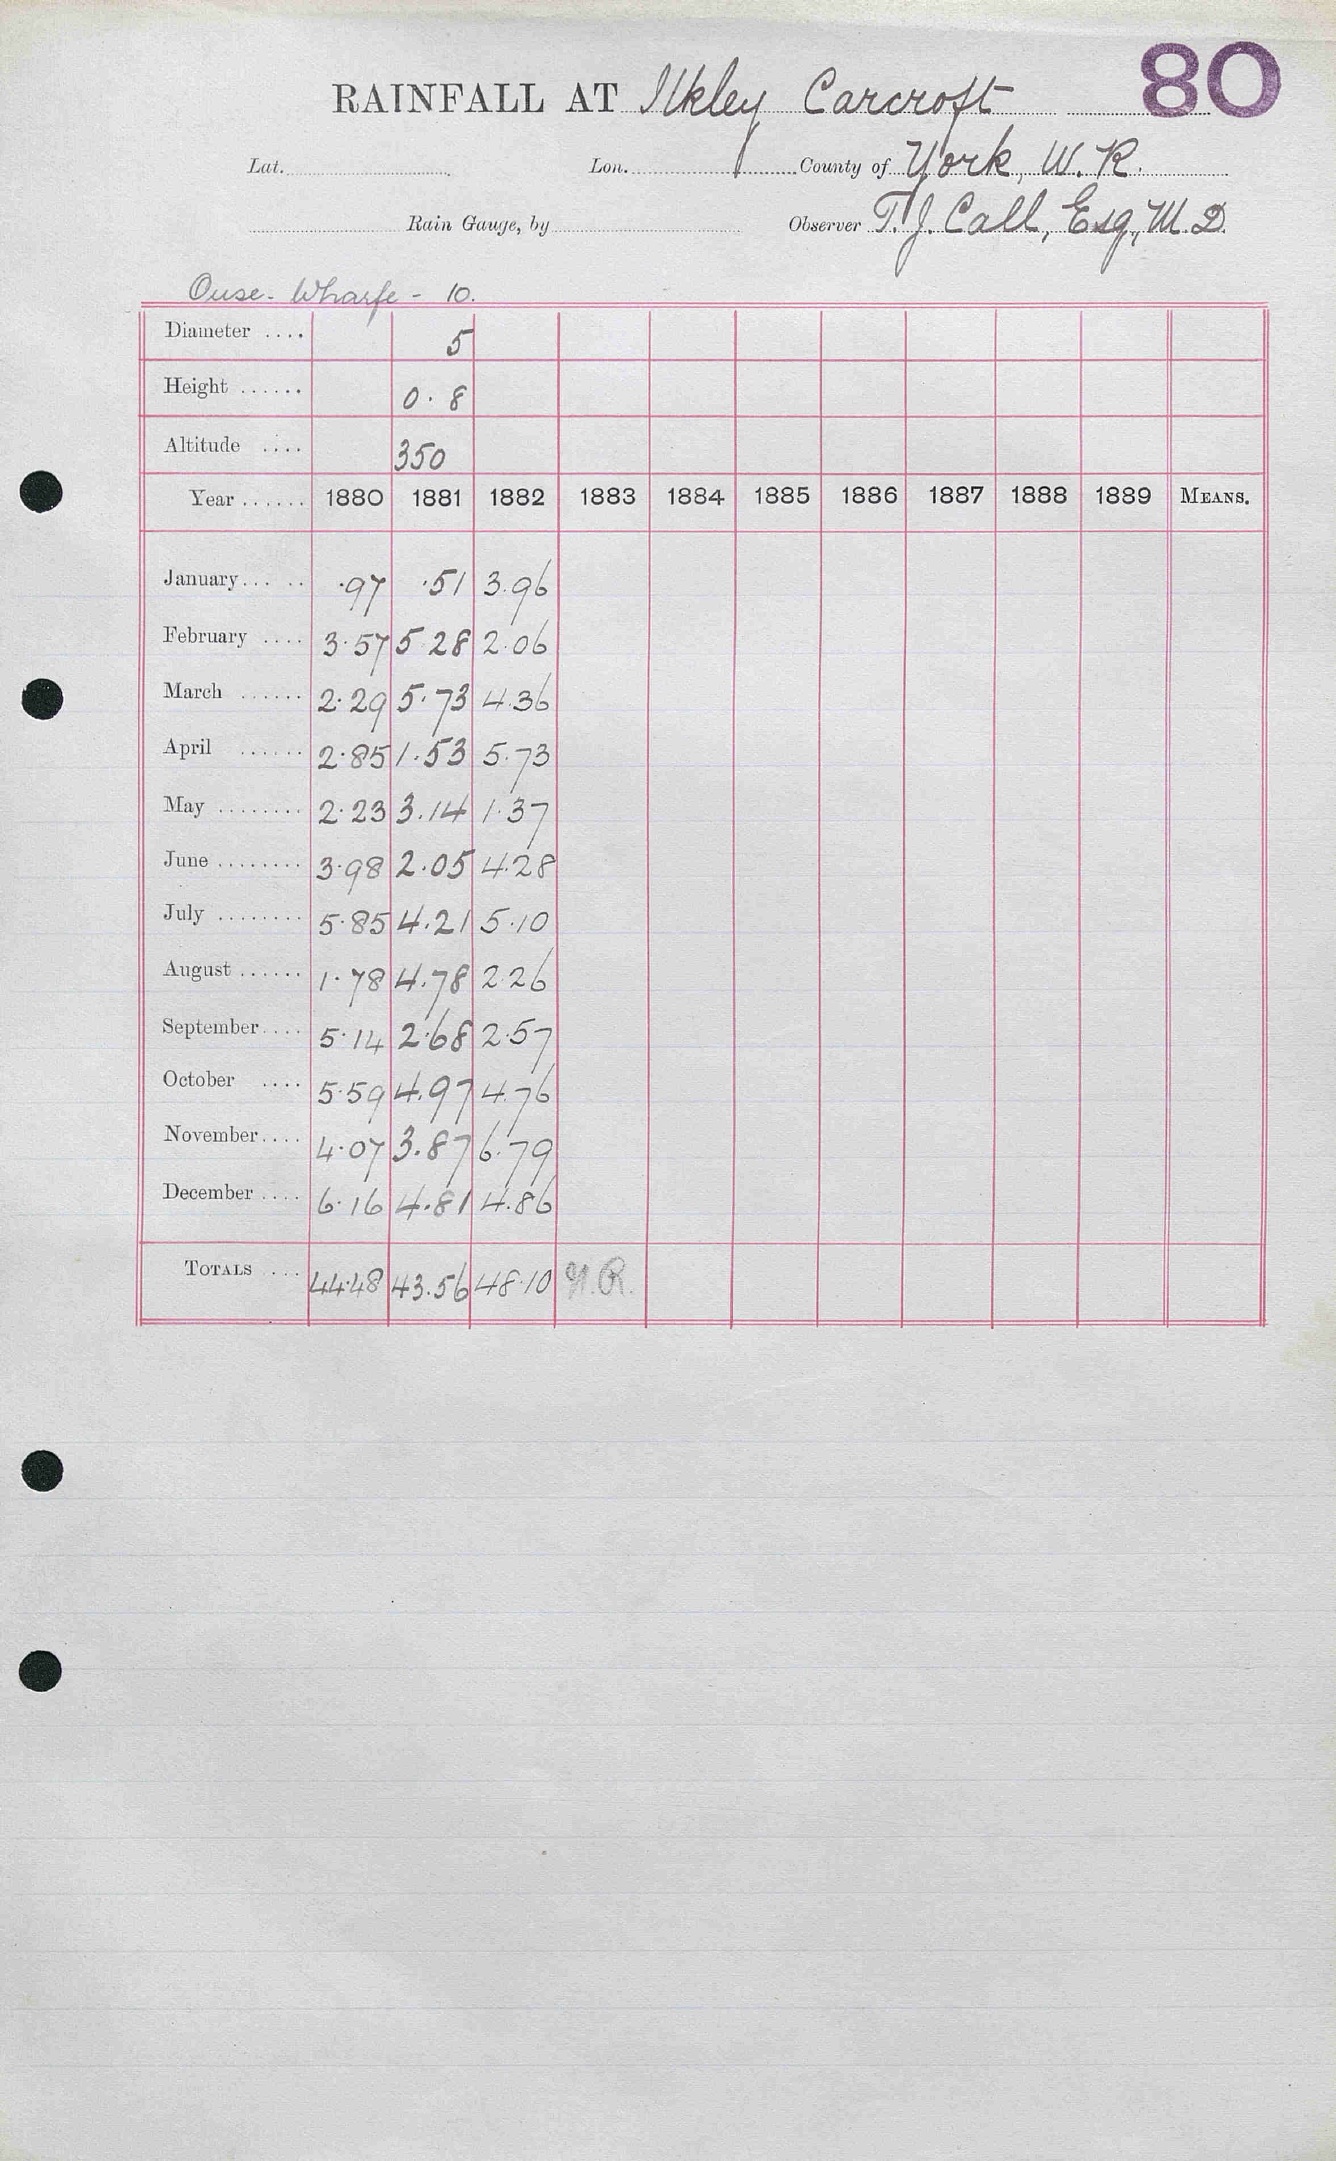 80
RAINFALL AT Ilkley Carcroft
Lat. Lon. County of York, W. R.
Rain Gauge, by Observer T. J. Call, Esq., M.D.
Ouse - Wharfe - 10.
Diameter .... 5
Height ...... 0.8
Altitude .... 350
Year ...... 1880 1881 1882 1883 1884 1885 1886 1887 1888 1889 MEANS.
January... .. .97 .51 3.96
February .... 3.57 5.28 2.06
March ...... 2.29 5.73 4.36
April ...... 2.85 1.53 5.73
May ........ 2.23 3.14 1.37
June ........ 3.98 2.05 4.28
July ........ 5.85 4.21 5.10
August ...... 1.78 4.78 2.26
September.... 5.14 2.68 2.57
October .... 5.59 4.97 4.76
November.... 4.07 3.87 6.79
December .... 6.16 4.81 4.86
TOTALS .... 44.48 43.56 48.10 N.R.